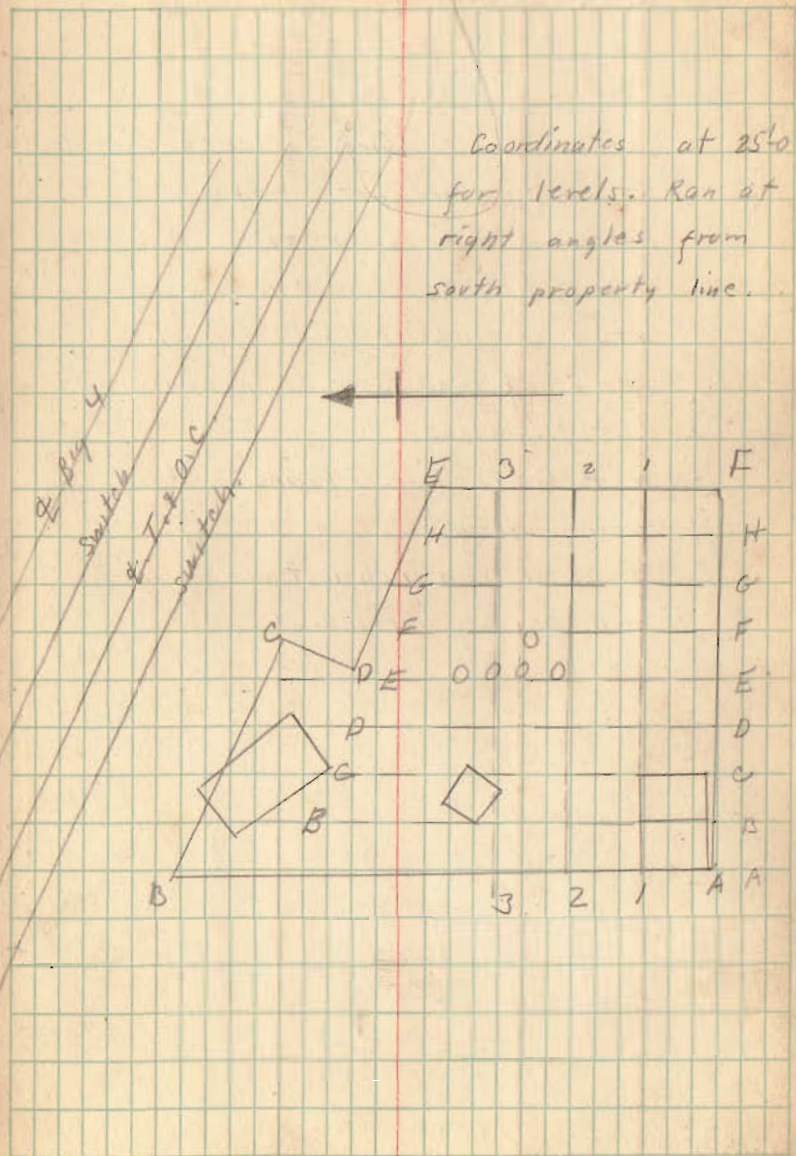 Coordinates at 25'0
for levels. Ran at
right angles from
south property line.
℄ Big 4
Switch
℄ I.&
switch.
E 3 2 1 F
H H
G G
F F
C
D E E
D D
C C
B B
A
B 3 2 1 A